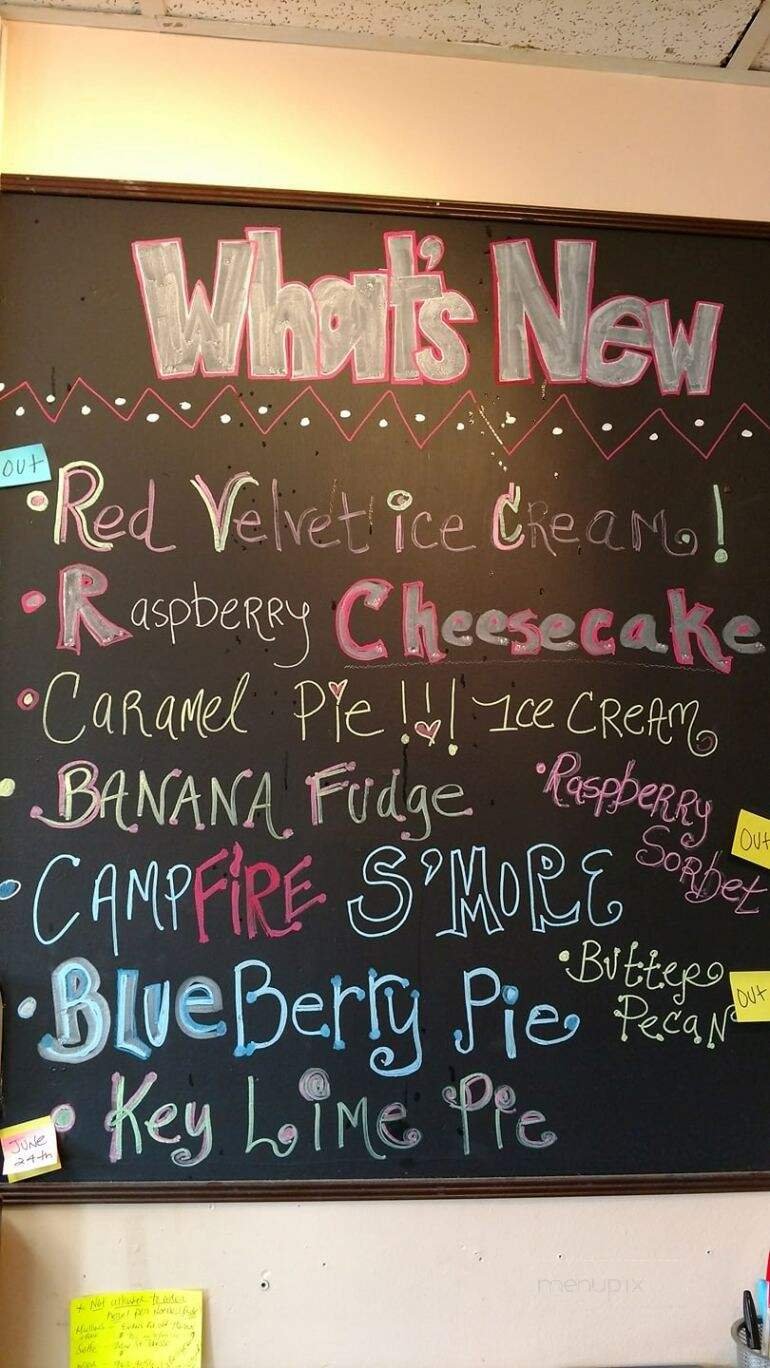 What's New
OUT
Red Velvet ice CReam.!
Raspberry Cheesecake
CARAMEL Pie!!! Ice CREAM
BANANA Fudge
Raspberry
Sorbet
OUT
CAMPFiRE S'MORE
BlueBerry Pie
Butter
Pecan
OUT
Key Lime Pie
JUNE
24th
menupix
Not allowed